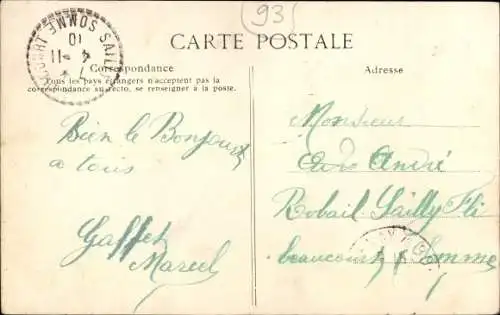 93
CARTE POSTALE
Correspondance
Tous les pays étrangers n'acceptent pas la
correspondance au recto, se renseigner à la poste.
Adresse
SAILLY SOMME
10
4 - 11
Bien le Bonjour
a tous
Gaffet
Marcel
Monsieur
André
Robail Sailly Fli
beaucourt Somme